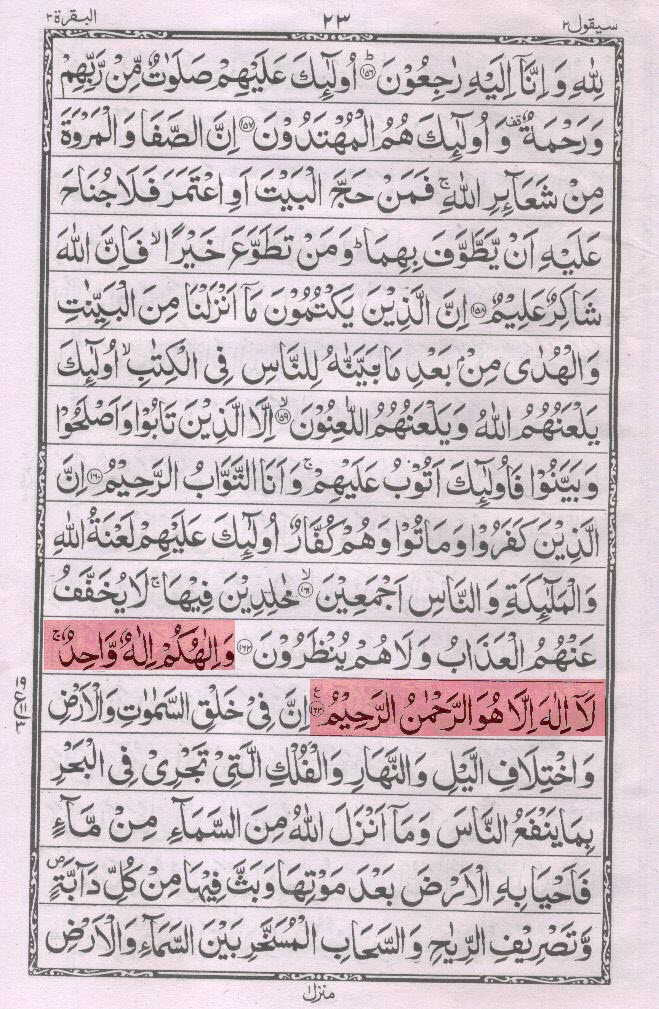 سيقول٢ ٢٣ البقرة٢
لِلّٰهِ وَ اِنَّاۤ اِلَيْهِ رٰجِعُوْنَ ؕ‏﴿۱۵۶﴾ اُولٰٓئِكَ عَلَيْهِمْ صَلَوٰتٌ مِّنْ رَّبِّهِمْ
وَ رَحْمَةٌ ۟ وَ اُولٰٓئِكَ هُمُ الْمُهْتَدُوْنَ ﴿۱۵۷﴾ اِنَّ الصَّفَا وَ الْمَرْوَةَ
مِنْ شَعَآئِرِ اللّٰهِ ۚ فَمَنْ حَجَّ الْبَيْتَ اَوِ اعْتَمَرَ فَلَا جُنَاحَ
عَلَيْهِ اَنْ يَّطَّوَّفَ بِهِمَا ؕ وَ مَنْ تَطَوَّعَ خَيْرًا ۙ فَاِنَّ اللّٰهَ
شَاكِرٌ عَلِيْمٌ ﴿۱۵۸﴾ اِنَّ الَّذِيْنَ يَكْتُمُوْنَ مَاۤ اَنْزَلْنَا مِنَ الْبَيِّنٰتِ
وَ الْهُدٰى مِنْۢ بَعْدِ مَا بَيَّنّٰهُ لِلنَّاسِ فِى الْكِتٰبِ ۙ اُولٰٓئِكَ
يَلْعَنُهُمُ اللّٰهُ وَ يَلْعَنُهُمُ اللّٰعِنُوْنَ ۙ﴿۱۵۹﴾ اِلَّا الَّذِيْنَ تَابُوْا وَ اَصْلَحُوْا
وَ بَيَّنُوْا فَاُولٰٓئِكَ اَتُوْبُ عَلَيْهِمْ ۚ وَ اَنَا التَّوَّابُ الرَّحِيْمُ ﴿۱۶۰﴾ اِنَّ
الَّذِيْنَ كَفَرُوْا وَ مَاتُوْا وَ هُمْ كُفَّارٌ اُولٰٓئِكَ عَلَيْهِمْ لَعْنَةُ اللّٰهِ
وَ الْمَلٰٓئِكَةِ وَ النَّاسِ اَجْمَعِيْنَ ۙ﴿۱۶۱﴾ خٰلِدِيْنَ فِيْهَا ۚ لَا يُخَفَّفُ
عَنْهُمُ الْعَذَابُ وَ لَا هُمْ يُنْظَرُوْنَ ﴿۱۶۲﴾ وَ اِلٰهُكُمْ اِلٰهٌ وَّاحِدٌ ۚ
لَاۤ اِلٰهَ اِلَّا هُوَ الرَّحْمٰنُ الرَّحِيْمُ ﴿۱۶۳﴾ع اِنَّ فِىْ خَلْقِ السَّمٰوٰتِ وَ الْاَرْضِ
وَ اخْتِلَافِ الَّيْلِ وَ النَّهَارِ وَ الْفُلْكِ الَّتِىْ تَجْرِىْ فِى الْبَحْرِ
بِمَا يَنْفَعُ النَّاسَ وَ مَاۤ اَنْزَلَ اللّٰهُ مِنَ السَّمَآءِ مِنْ مَّآءٍ
فَاَحْيَا بِهِ الْاَرْضَ بَعْدَ مَوْتِهَا وَ بَثَّ فِيْهَا مِنْ كُلِّ دَآبَّةٍ ۪
وَّ تَصْرِيْفِ الرِّيٰحِ وَ السَّحَابِ الْمُسَخَّرِ بَيْنَ السَّمَآءِ وَ الْاَرْضِ
منزل١